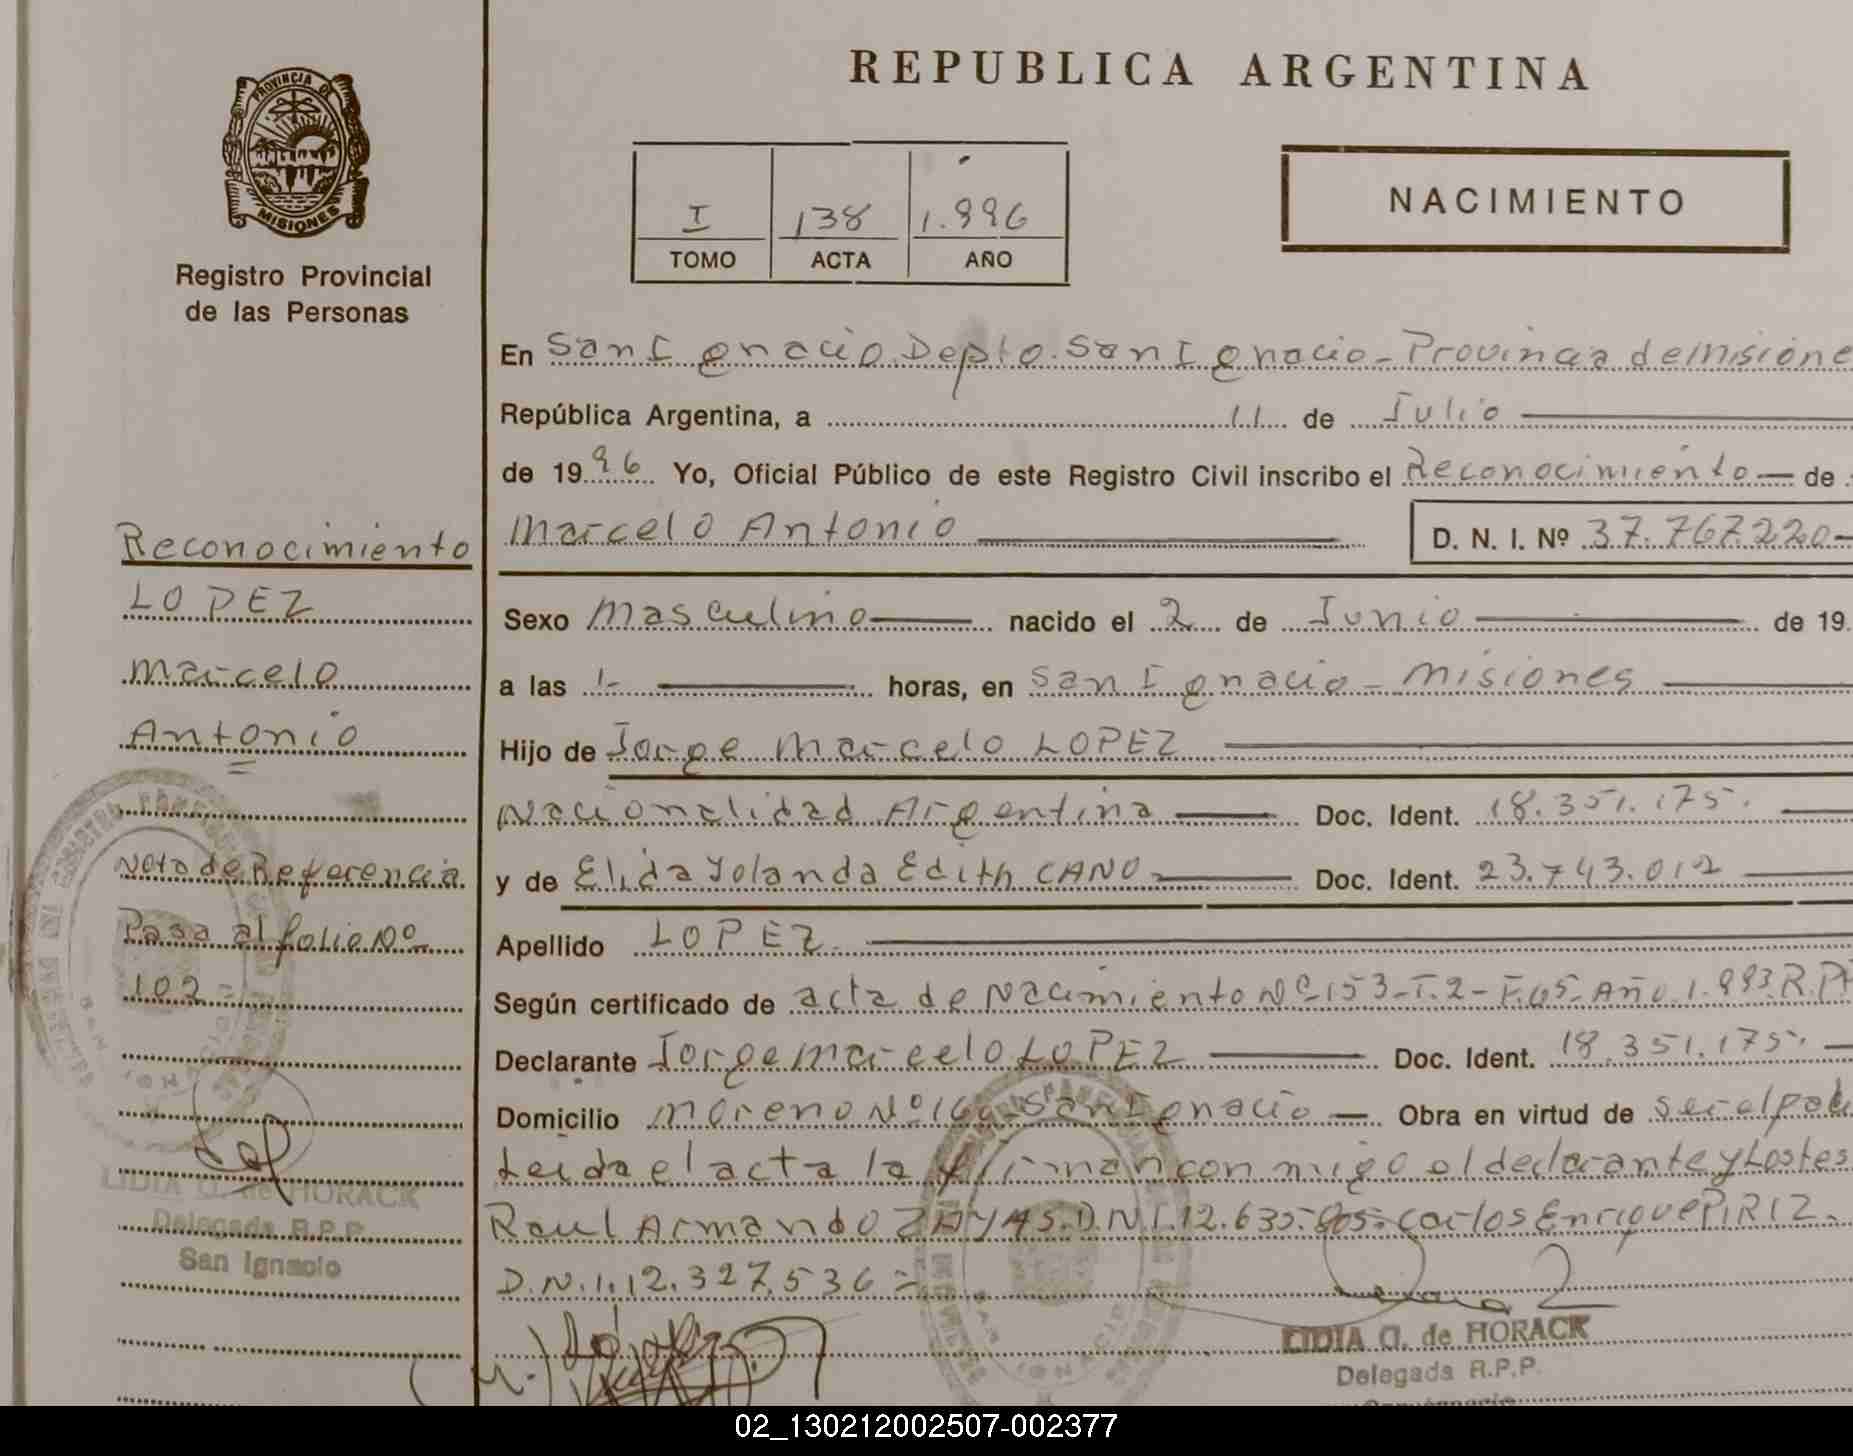 PROVINCIA DE
MISIONES
Registro Provincial
de las Personas
REPUBLICA ARGENTINA
I 138 1.996
TOMO ACTA AÑO
NACIMIENTO
En San Ignacio Depto. San Ignacio - Provincia de misione
República Argentina, a 11 de Julio
de 1996 Yo, Oficial Público de este Registro Civil inscribo el Reconocimiento — de
Marcelo Antonio
D. N. I. Nº 37.767.220-
Sexo Masculino nacido el 2 de Junio de 19
a las 1- horas, en San Ignacio - Misiones
Hijo de Jorge Marcelo LOPEZ
Nacionalidad Argentina Doc. Ident. 18.351.175.
y de Elida Yolanda Edith CANO Doc. Ident. 23.743.012
Apellido LOPEZ
Según certificado de acta de Nacimiento Nº 153-T.2-F.65-Año 1.993.R.P
Declarante Jorge Marcelo LOPEZ Doc. Ident. 18.351.175.
Domicilio Moreno Nº San Ignacio — Obra en virtud de ser el pad
Leida el acta la firman con migo el declarante y Los tes
Raul Armando ZAYAS. D.N.I. 12.635. Carlos Enrique PIRIZ.
D.N.I. 12.327.536=
LIDIA G. de HORACK
Delegada R.P.P.
Reconocimiento
LOPEZ
Marcelo
Antonio
Nota de Referencia
Pasa al folio Nº
102=
LIDIA G. de HORACK
Delegada R.P.P
San Ignacio
02_130212002507-002377